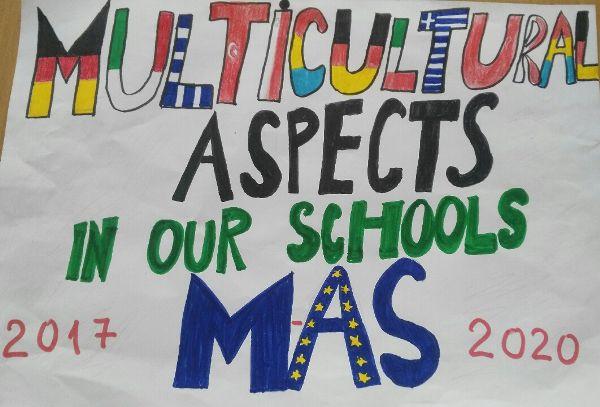 MULTICULTURAL
ASPECTS
IN OUR SCHOOLS
M-AS
2017 2020